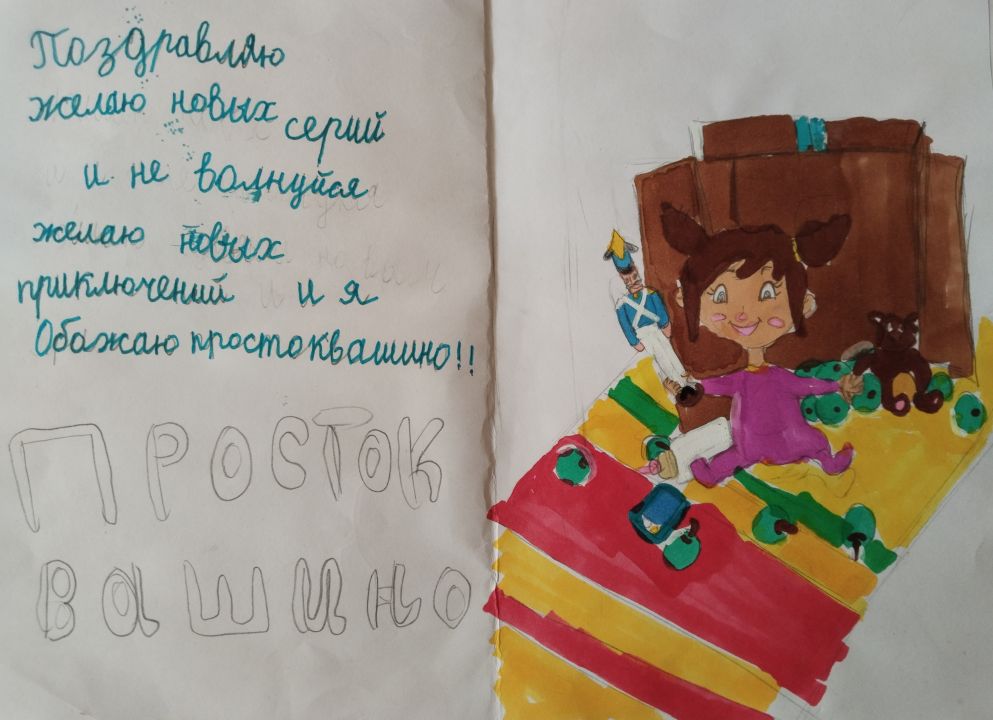 Поздравляю
желаю новых серий
и не волнуйся
желаю новых
приключений и я
Обажаю простоквашино!!
ПРОСТОК
ВАШИНО